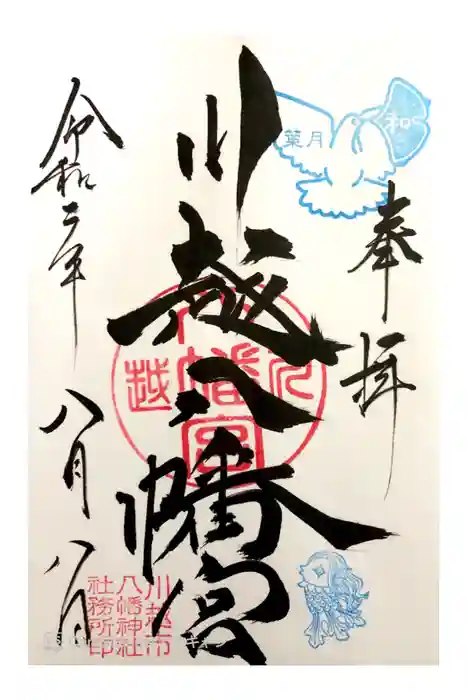 奉拝
和
葉月
川越八幡宮
越
幡
宮
川越市
八幡神社
社務所印
令和二年
八月八日